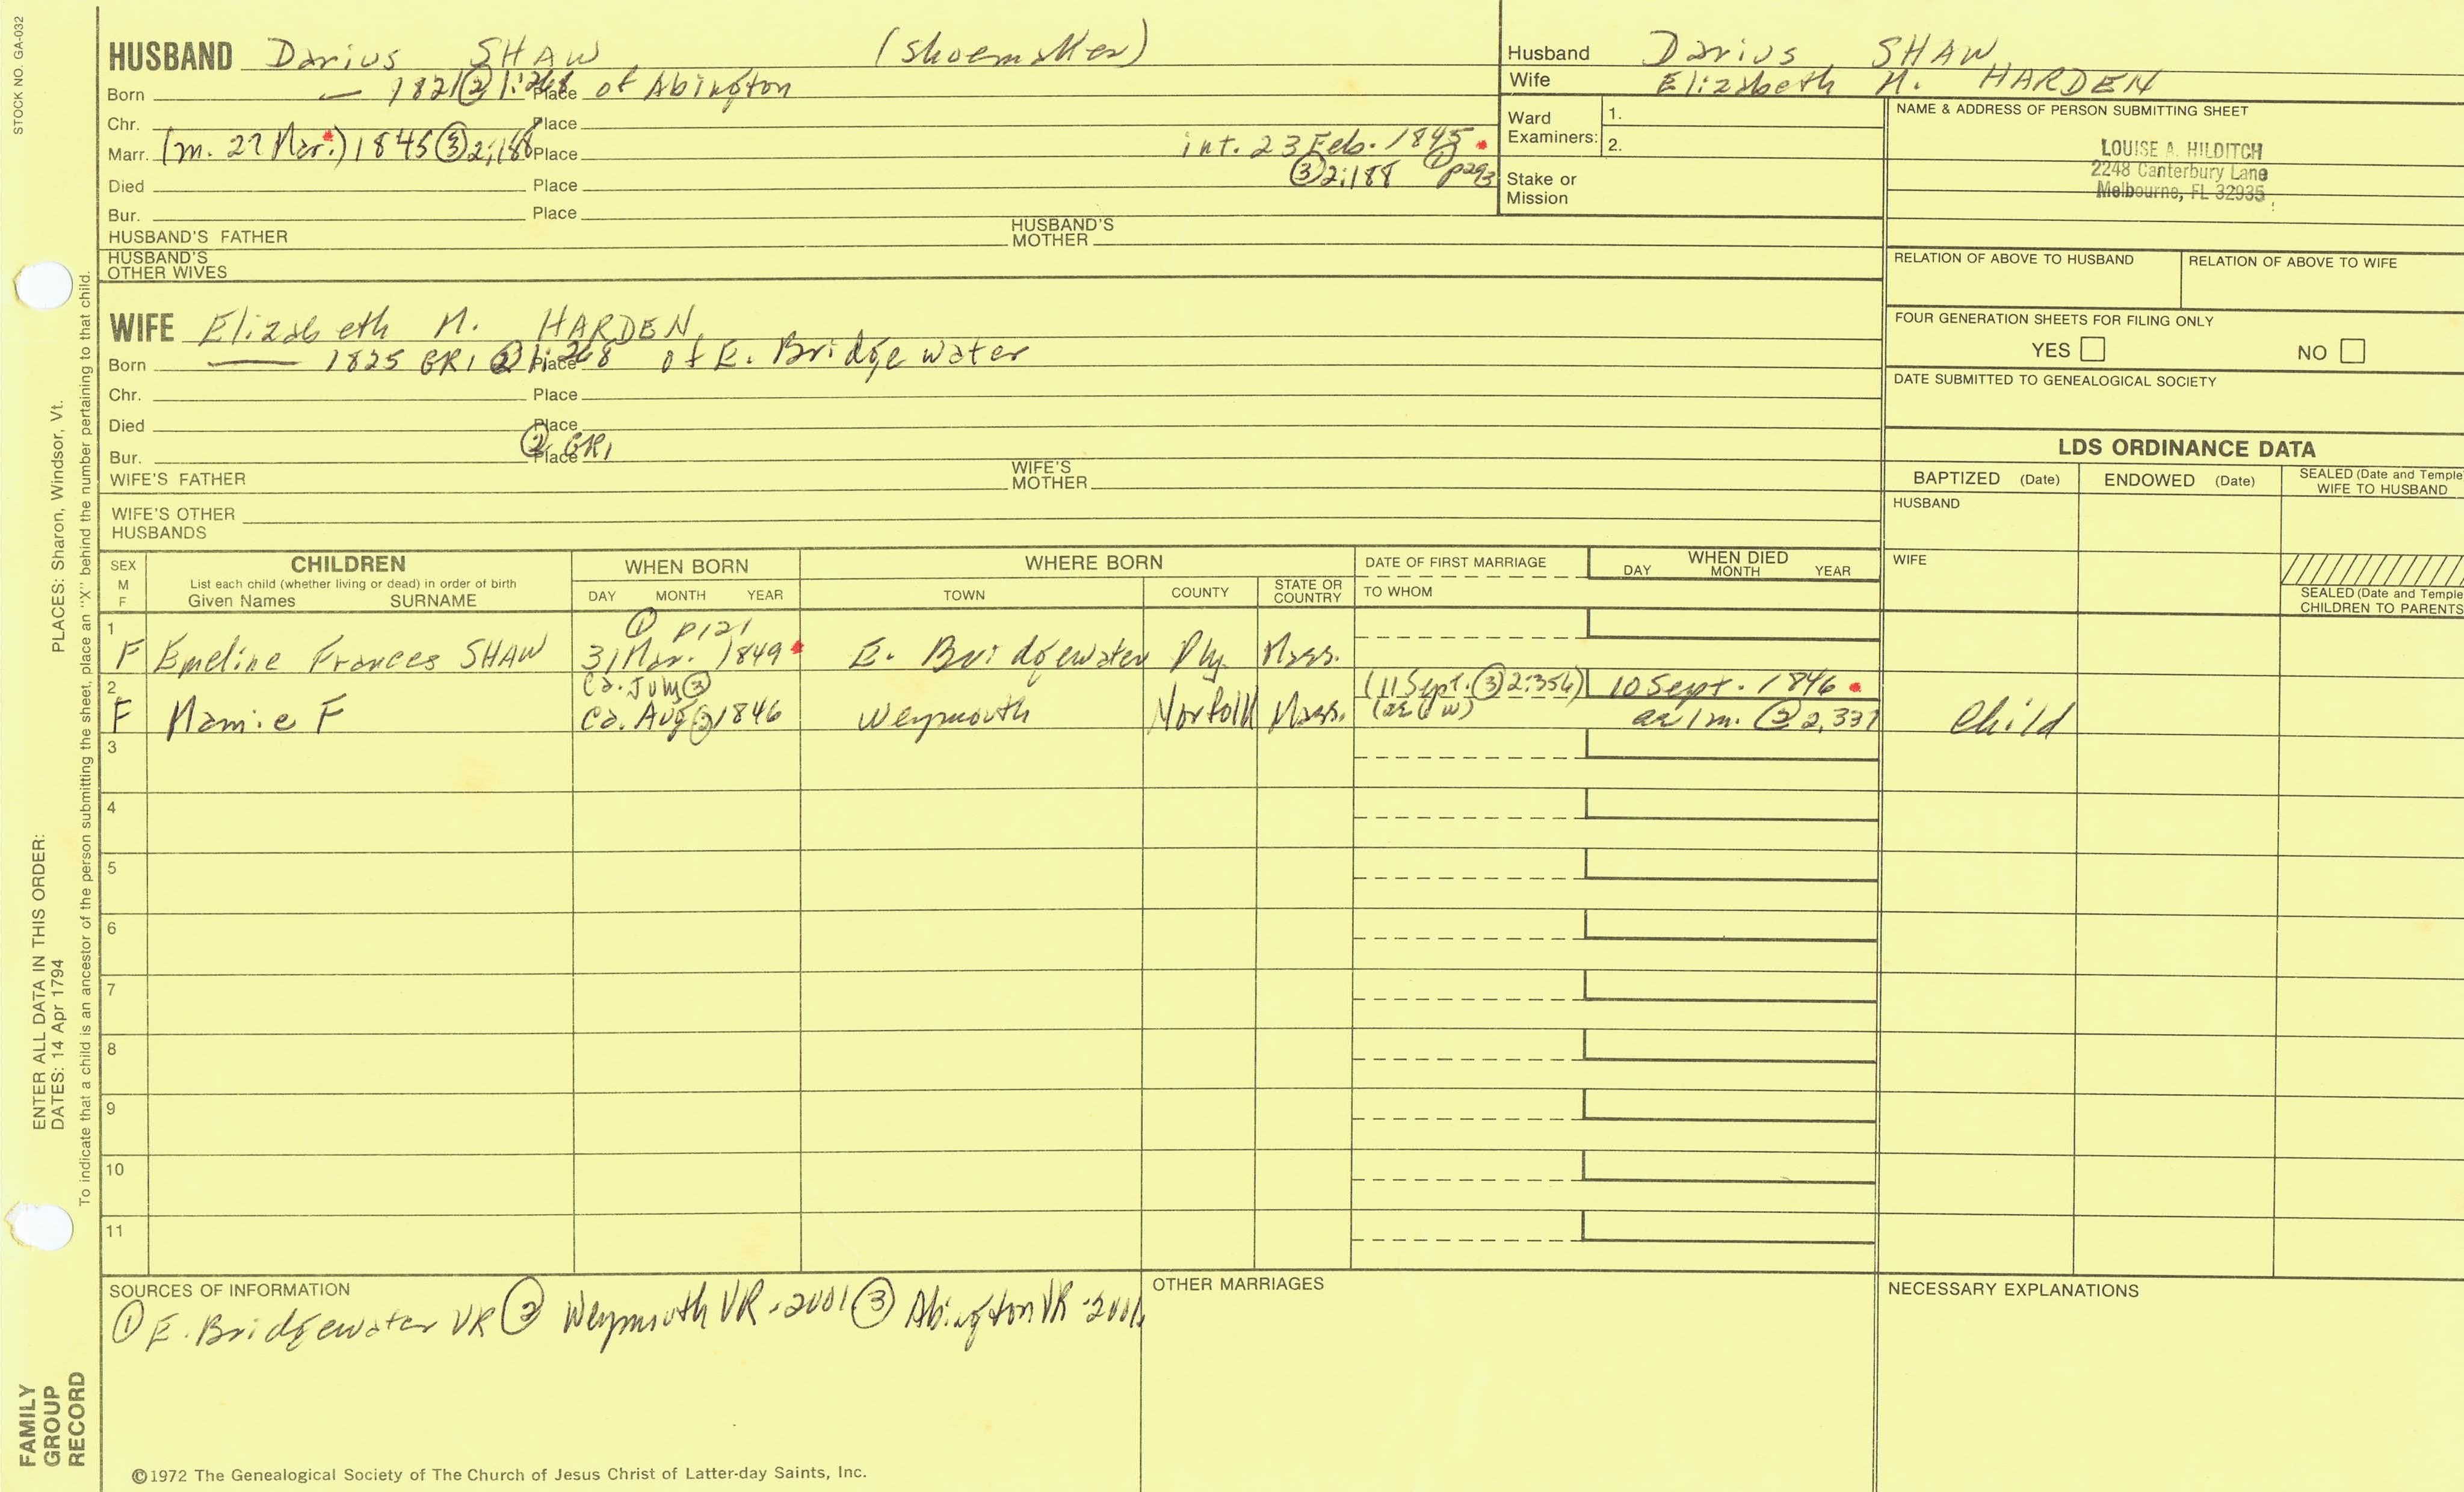 STOCK NO. GA-032
HUSBAND Darius SHAW (shoemaker)
Born — 1821 ② 1:268 Place of Abington
Chr. Place
Marr. (m. 27 Mar.) 1845 ③ 2:188 Place int. 23 Feb. 1845
③ 2:188 ① p293
Died Place
Bur. Place
HUSBAND'S FATHER HUSBAND'S MOTHER
HUSBAND'S OTHER WIVES
Husband Darius SHAW
Wife Elizabeth M. HARDEN
Ward Examiners: 1.
2.
Stake or Mission
NAME & ADDRESS OF PERSON SUBMITTING SHEET
LOUISE A. HILDITCH
2248 Canterbury Lane
Melbourne, FL 32935
RELATION OF ABOVE TO HUSBAND RELATION OF ABOVE TO WIFE
FOUR GENERATION SHEETS FOR FILING ONLY
YES NO
DATE SUBMITTED TO GENEALOGICAL SOCIETY
WIFE Elizabeth M. HARDEN
Born — 1825 GR1 ② 1:268 Place of E. Bridgewater
Chr. Place
Died Place
Bur. Place ② GR1
WIFE'S FATHER WIFE'S MOTHER
WIFE'S OTHER HUSBANDS
LDS ORDINANCE DATA
BAPTIZED (Date) ENDOWED (Date) SEALED (Date and Temple WIFE TO HUSBAND
HUSBAND
WIFE
SEALED (Date and Temple CHILDREN TO PARENTS
SEX M F CHILDREN
List each child (whether living or dead) in order of birth
Given Names SURNAME
WHEN BORN
DAY MONTH YEAR
WHERE BORN
TOWN COUNTY STATE OR COUNTRY
DATE OF FIRST MARRIAGE
TO WHOM
WHEN DIED
DAY MONTH YEAR
① p121
1 F Emeline Frances SHAW 31 Mar. 1849 E. Bridgewater Ply. Mass.
Ca. July ③ (11 Sept. ③ 2:354) 10 Sept. 1846
2 F Mamie F Ca. Aug ② 1846 Weymouth Norfolk Mass. (ae 6 w) ae 1 m. ② 2,337 Child
3
4
5
6
7
8
9
10
11
SOURCES OF INFORMATION
① E. Bridgewater VR ② Weymouth VR-2001 ③ Abington VR-2001
OTHER MARRIAGES
NECESSARY EXPLANATIONS
©1972 The Genealogical Society of The Church of Jesus Christ of Latter-day Saints, Inc.
FAMILY GROUP RECORD
ENTER ALL DATA IN THIS ORDER:
DATES: 14 Apr 1794 PLACES: Sharon, Windsor, Vt.
To indicate that a child is an ancestor of the person submitting the sheet, place an "X" behind the number pertaining to that child.